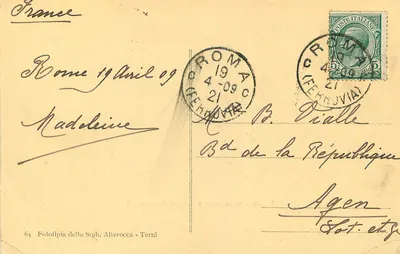 France
Rome 19 Avril 09
Madeleine
ROMA
19
4-09
21
(FERROVIA)
POSTE ITALIANE
5
ROMA
4-09
21
(FERROVIA)
M. B. Vialle
Bd de la République
Agen
Lot. et G
61 Fototipia dello Stab. Alterocca - Terni